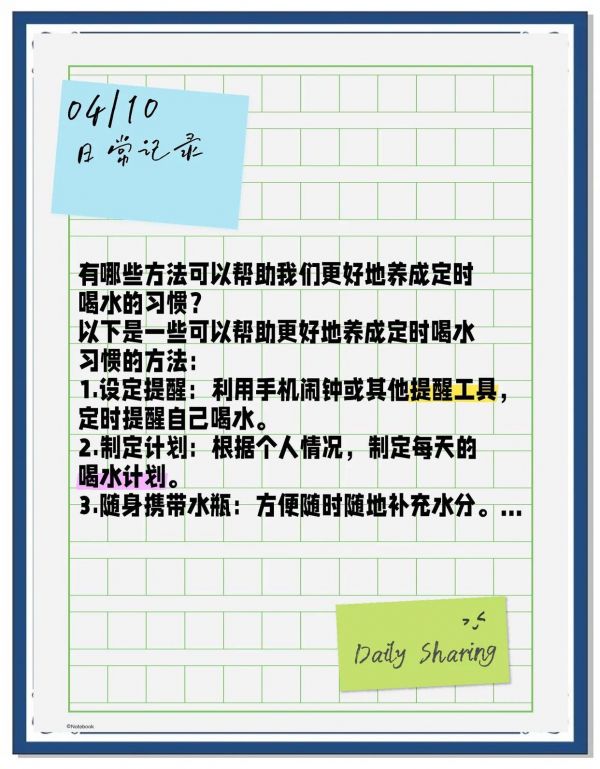 04/10
日常记录
有哪些方法可以帮助我们更好地养成定时
喝水的习惯？
以下是一些可以帮助更好地养成定时喝水
习惯的方法：
1.设定提醒：利用手机闹钟或其他提醒工具，
定时提醒自己喝水。
2.制定计划：根据个人情况，制定每天的
喝水计划。
3.随身携带水瓶：方便随时随地补充水分。...
Daily Sharing
©Notebook